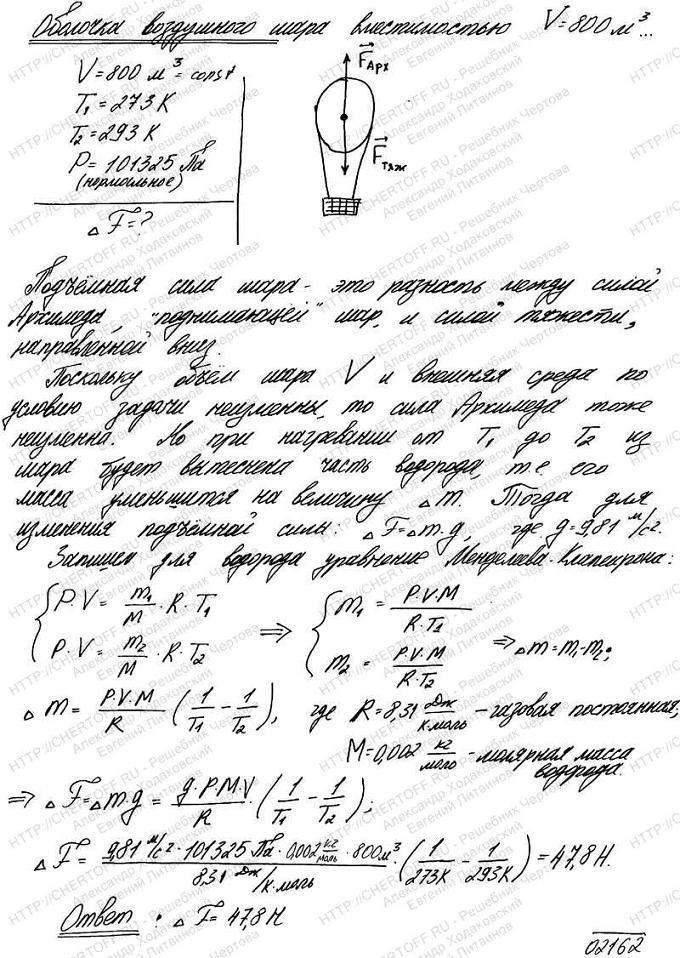 Оболочка воздушного шара вместимостью V=800 м³...
V=800 м³=const
T₁=273K
T₂=293K
P=101325 Па
(нормальное)
△F=?
F⃗Арх
F⃗тяж
Подъёмная сила шара - это разность между силой
Архимеда, "поднимающей" шар, и силой тяжести,
направленной вниз.
Поскольку объём шара V и внешняя среда по
условию задачи неизменны, то сила Архимеда тоже
неизменна. Но при нагревании от T₁ до T₂ из
шара будет вытеснена часть водорода, т.е. его
масса уменьшится на величину △m. Тогда для
изменения подъёмной силы: △F=△m·g, где g=9,81 м/с².
Запишем для водорода уравнение Менделеева-Клапейрона:
{ P·V = m₁/M · R·T₁
P·V = m₂/M · R·T₂ ⇒ { m₁ = P·V·M / R·T₁
m₂ = P·V·M / R·T₂ ⇒ △m=m₁-m₂;
△m = P·V·M / R (1/T₁ - 1/T₂), где R=8,31 Дж/К·моль - газовая постоянная;
M=0,002 кг/моль - молярная масса
водорода.
⇒ △F=△m·g = g·P·M·V / R · (1/T₁ - 1/T₂);
△F = 9,81 м/с² · 101325 Па · 0,002 кг/моль · 800м³ / 8,31 Дж/К·моль · (1/273K - 1/293K) = 47,8 Н.
Ответ : △F= 47,8 Н
02162
HTTP://CHERTOFF.RU - Решебник Чертова
Александр Ходаковский
Евгений Литвинов